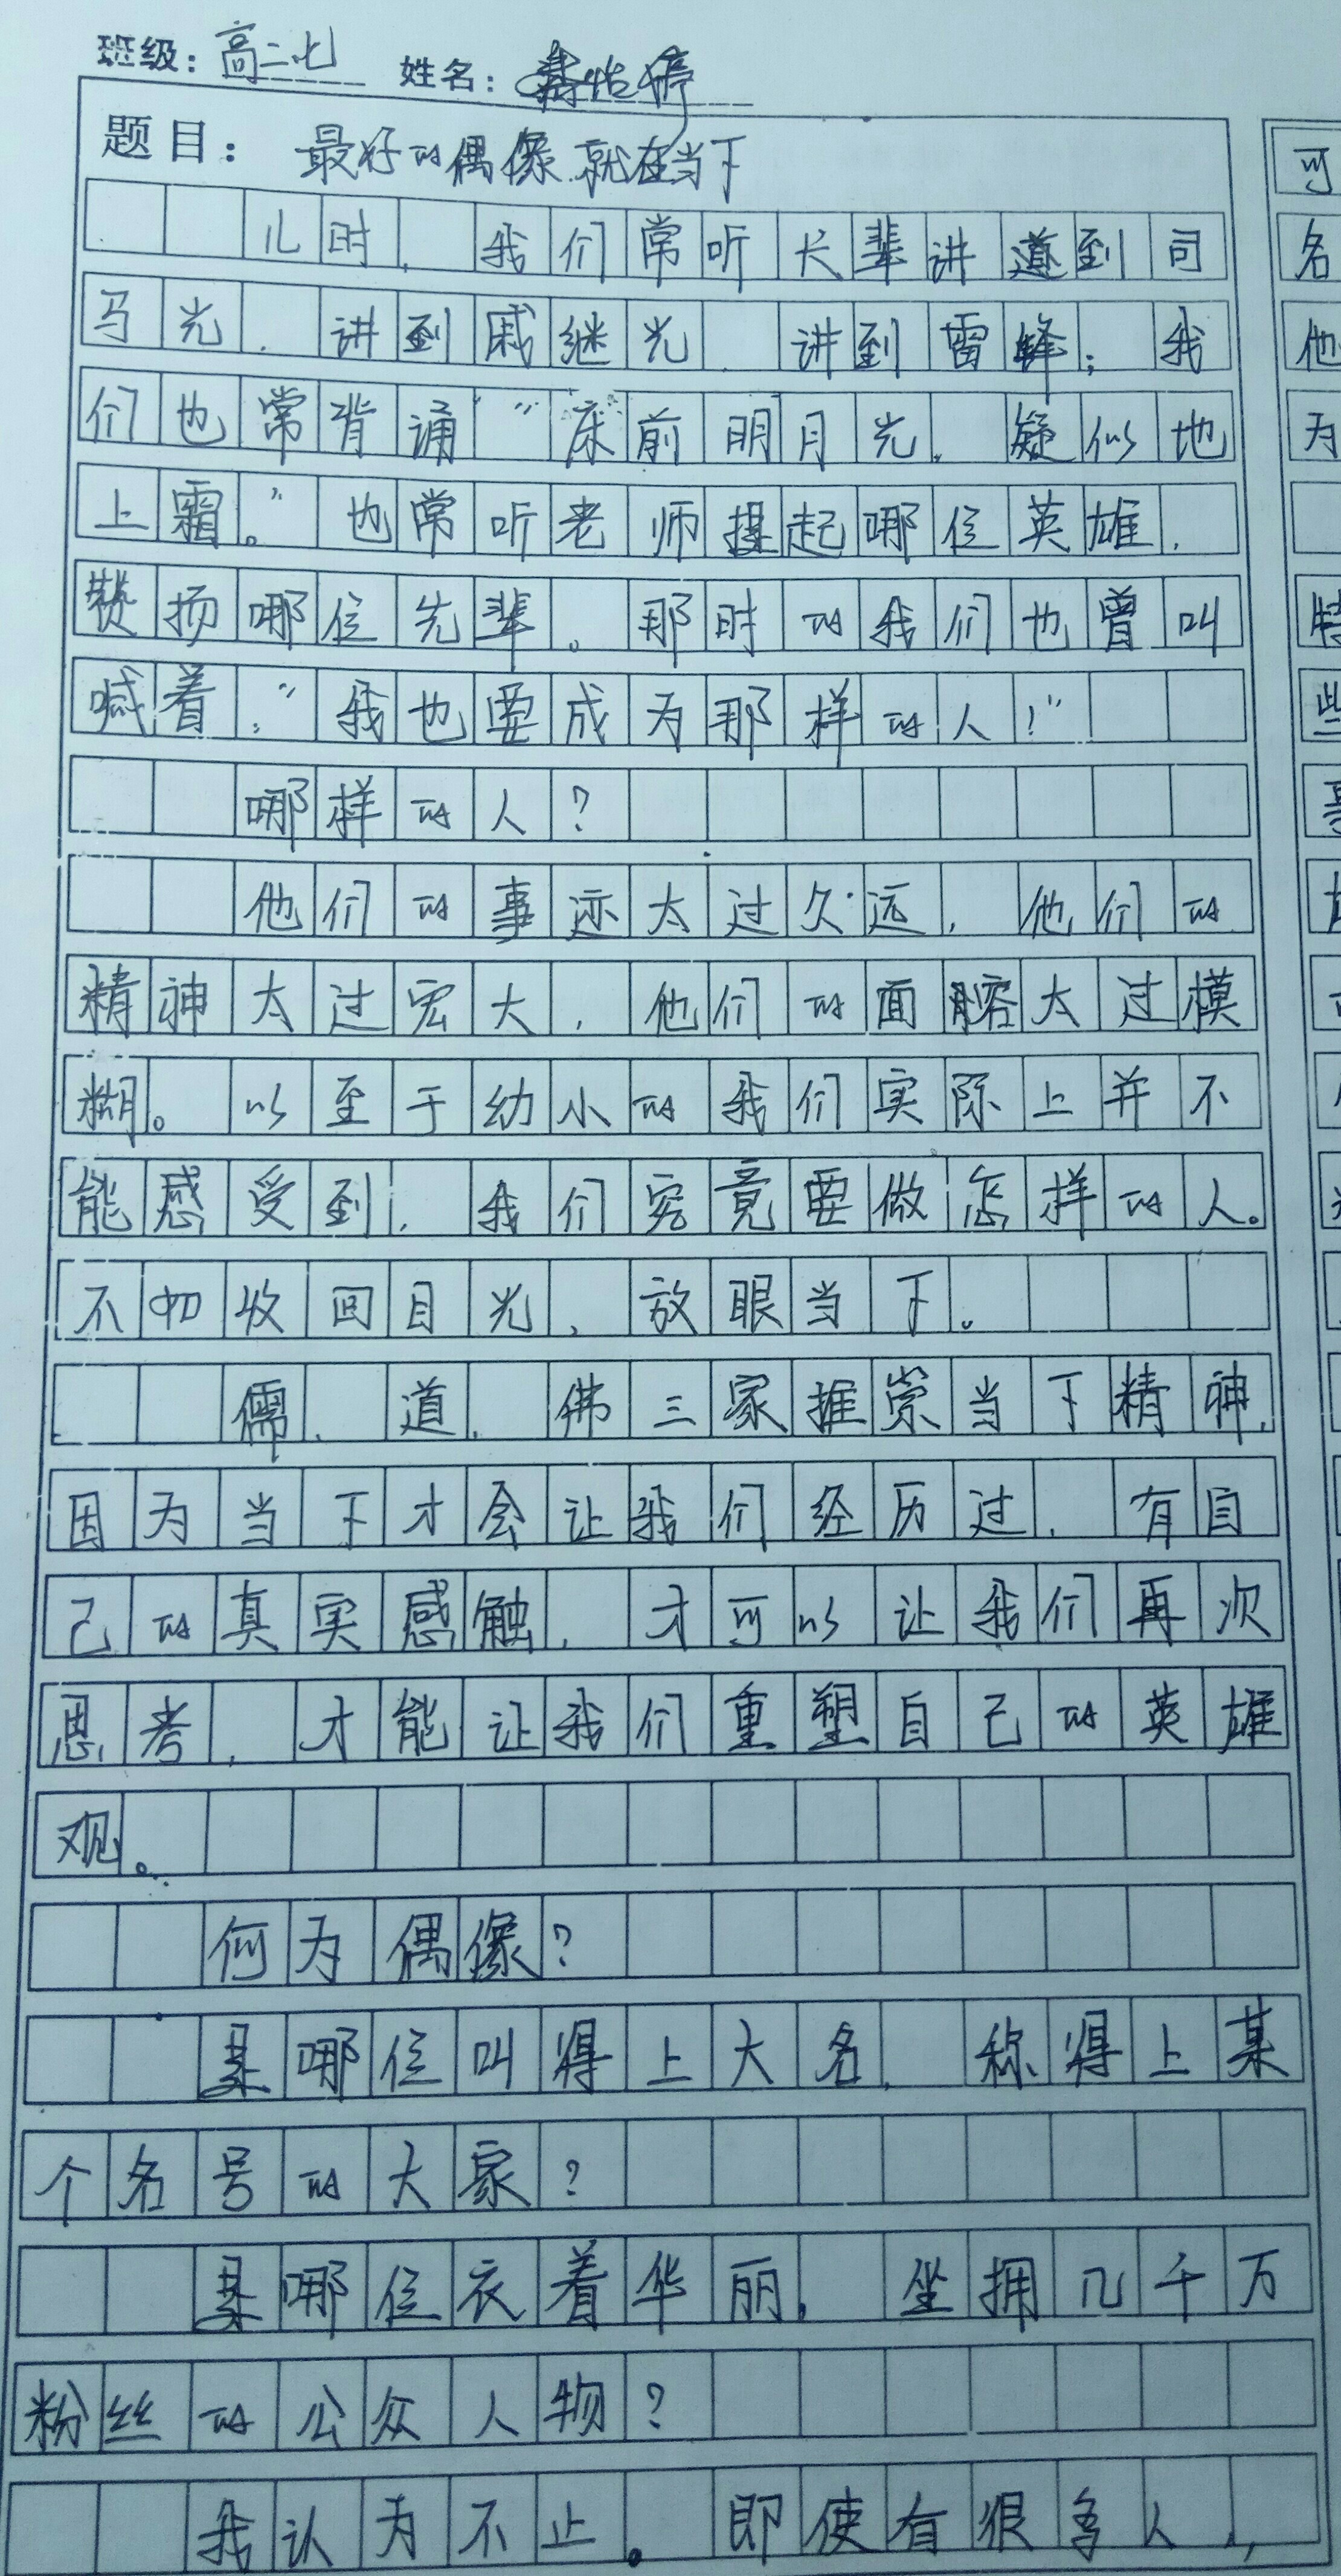 班级：高二七 姓名：
题目：最好的偶像就在当下
儿时，我们常听长辈讲道到司
马光，讲到戚继光，讲到雷锋；我
们也常背诵“床前明月光，疑似地
上霜。”也常听老师提起哪位英雄，
赞扬哪位先辈。那时的我们也曾叫
喊着：“我也要成为那样的人！”
哪样的人？
他们的事迹太过久远，他们的
精神太过宏大，他们的面容太过模
糊。以至于幼小的我们实际上并不
能感受到，我们究竟要做怎样的人。
不如收回目光，放眼当下。
儒、道、佛三家推崇当下精神，
因为当下才会让我们经历过，有自
己的真实感触，才可以让我们再次
思考，才能让我们重塑自己的英雄
观。
何为偶像？
是哪位叫得上大名，称得上某
个名号的大家？
是哪位衣着华丽，坐拥几千万
粉丝的公众人物？
我认为不止。即使有很多人，
可
名
他
为
些